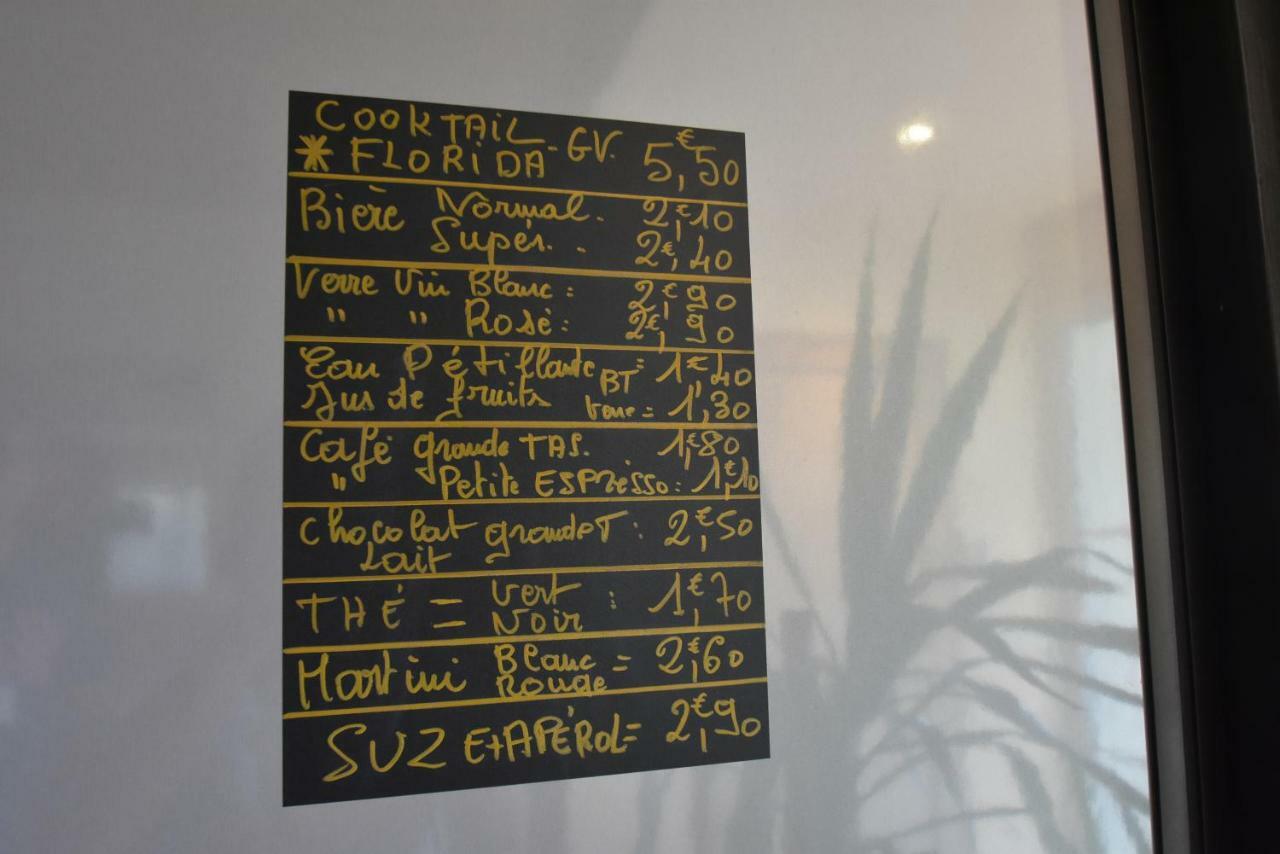 COOKTAIL
* FLORIDA - GV. 5,€50
Bière Normal. 2,€10
Supér. . 2€,40
Verre Vin Blanc : 2,€90
" " Rosé : 2€,90
Eau Pétillante BT = 1€40
Jus de fruits verre = 1',30
Café grande TAS. 1,€80
" Petite ESPresso : 1,€10
chocolat grande T : 2,€50
Lait
THÉ = vert : 1,€70
Noir
Martini Blanc = 2,€60
Rouge
SUZ Et APÉROL = 2,€90